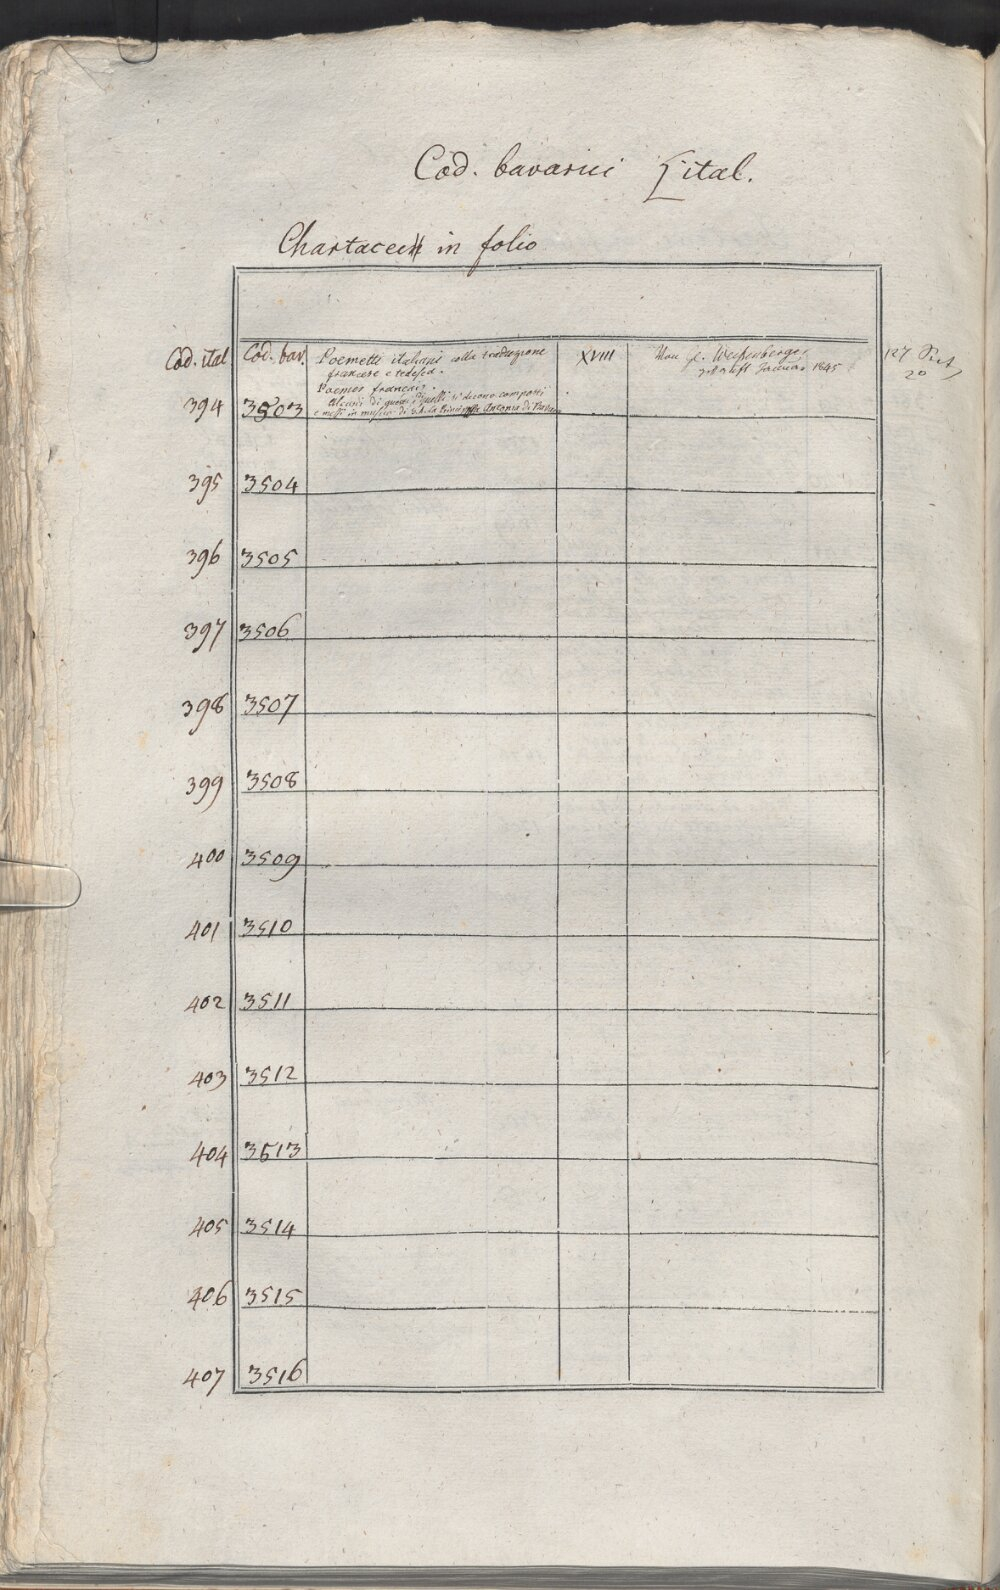 Cod. bavarici ital.
Chartacei in folio
Cod. ital Cod. bav. Poemetti italiani colla traduzione XVIII Von H. Weissenberger
francese e tedesca. Januar 1845
Poemes français.
394 3503 Alcuni di questi si dicono composti
e messi in musica di S.A. la Principessa Antonia di Baviera
395 3504
396 3505
397 3506
398 3507
399 3508
400 3509
401 3510
402 3511
403 3512
404 3513
405 3514
406 3515
407 3516
127
20